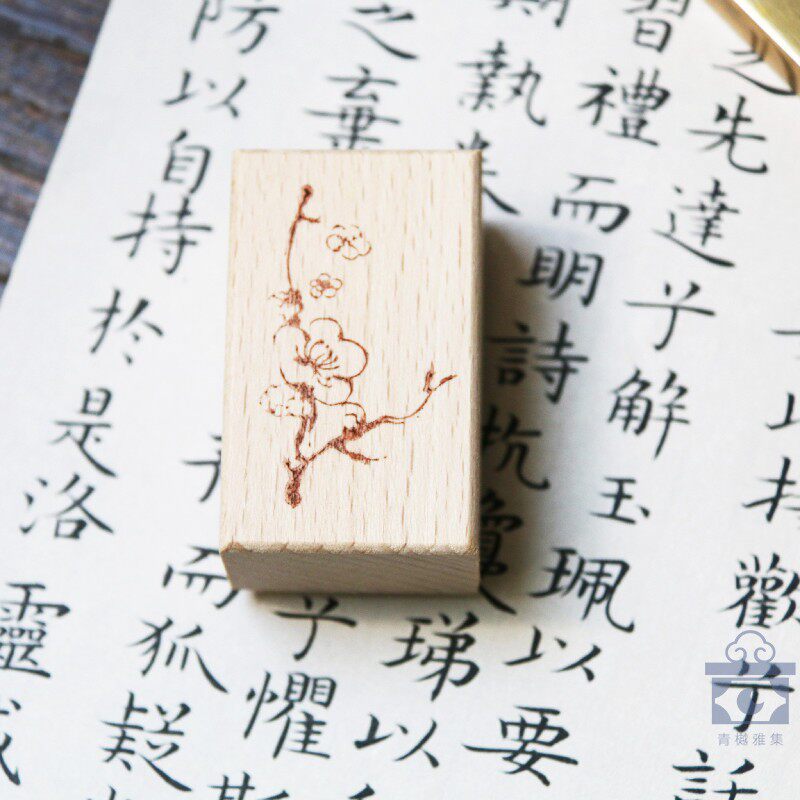 歡兮
之先達兮解玉珮以要
習禮而明詩抗瓊珶以
期執
兮懼斯
之棄
而狐疑
防以自持於是洛靈
青樾雅集